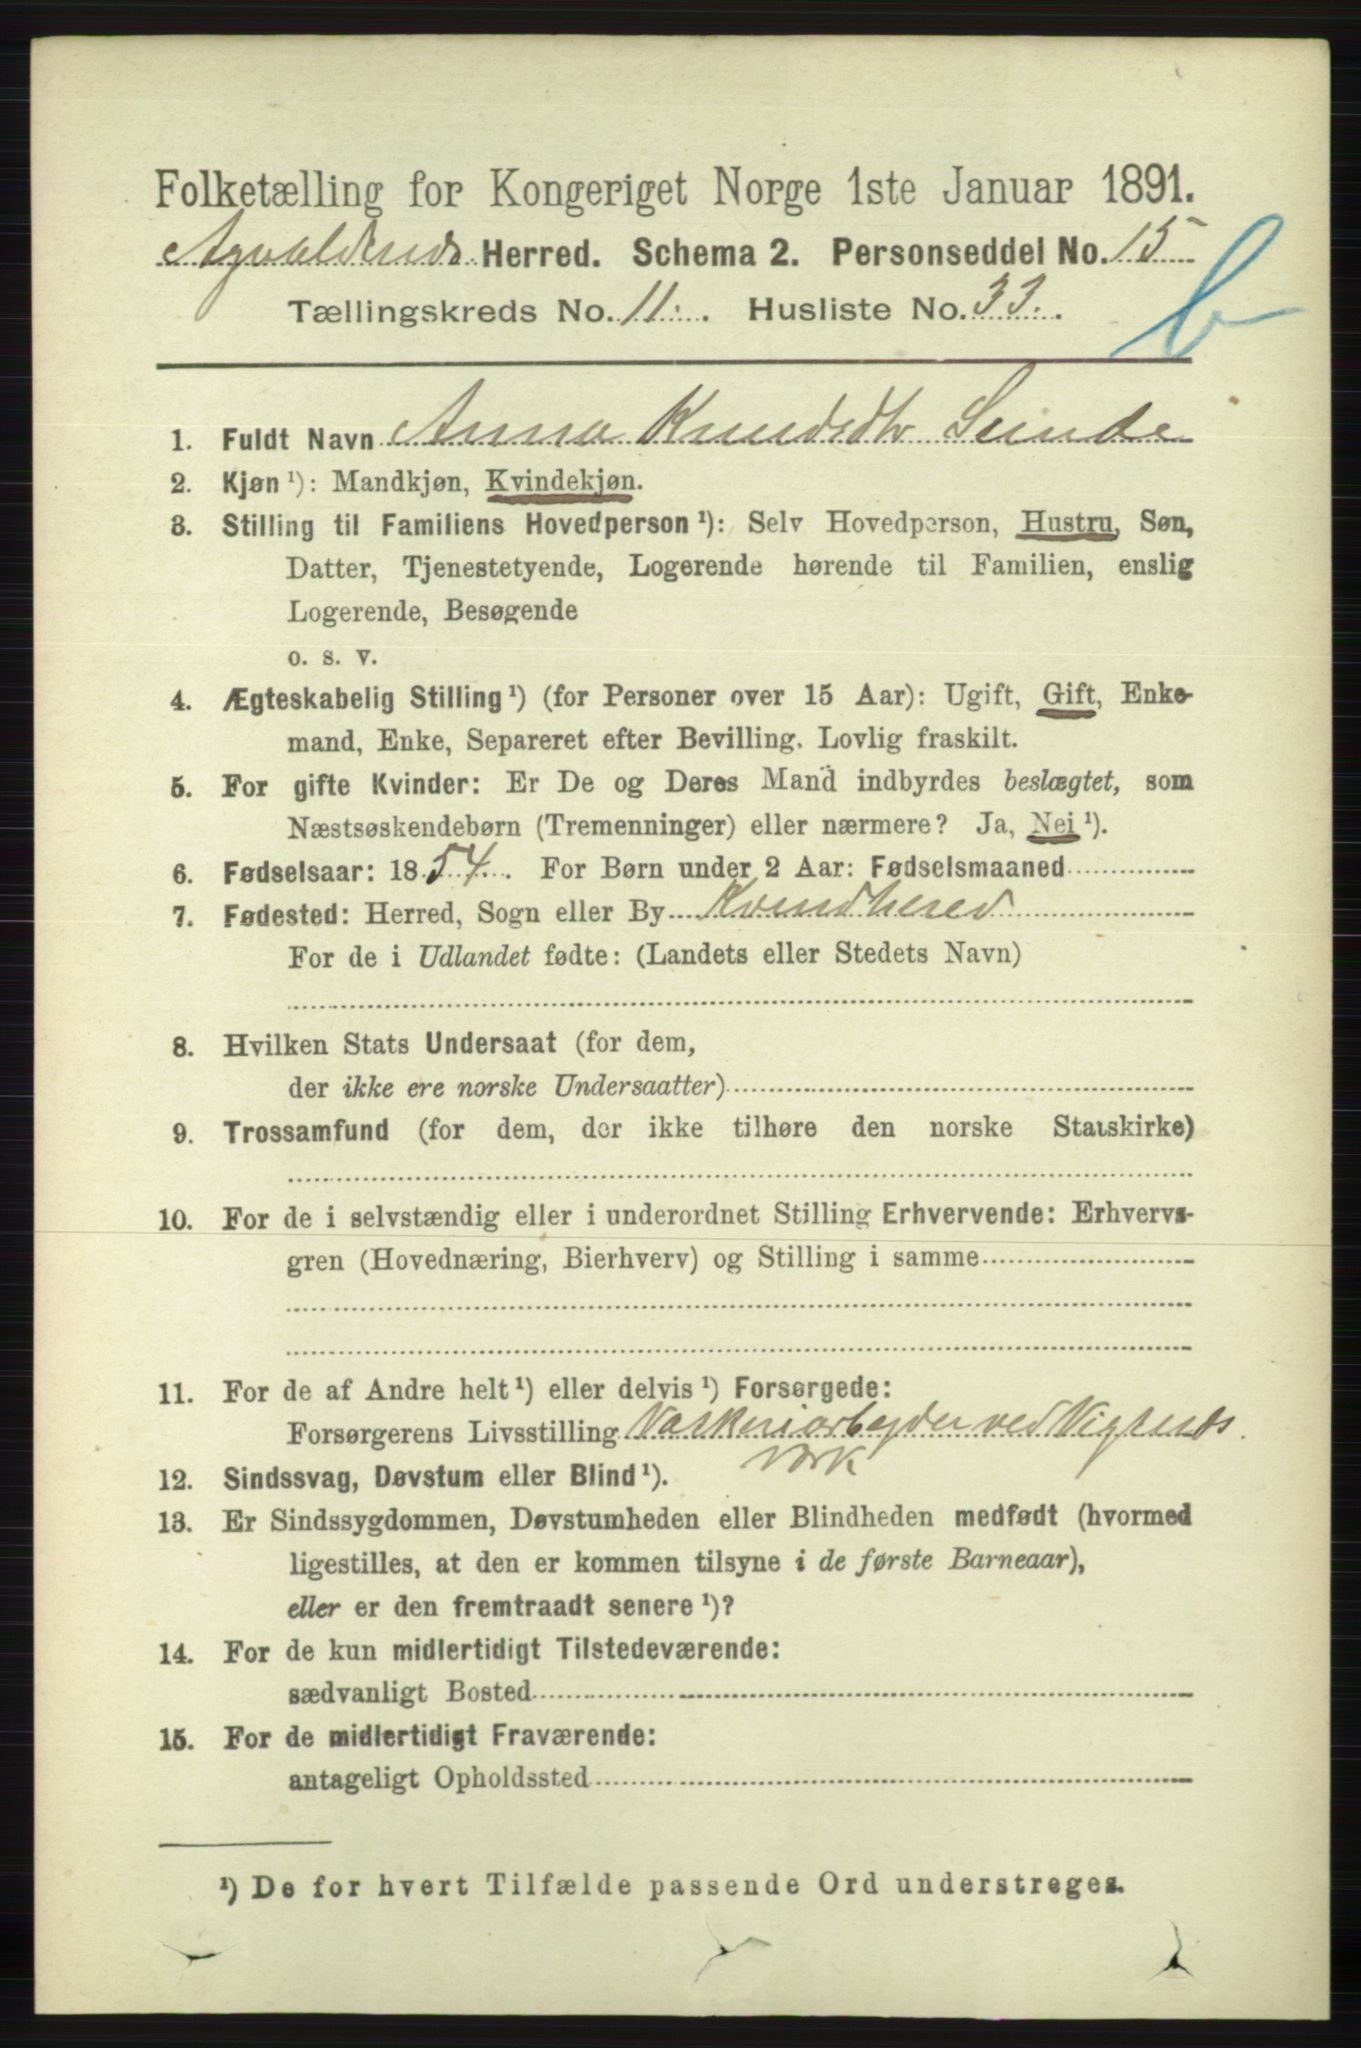 Folketælling for Kongeriget Norge 1ste Januar 1891.
Herred. Schema 2. Personseddel No. 15
Tællingskreds No. 11. Husliste No. 33.
b
1. Fuldt Navn Anna Knudsdtr Sunde
2. Kjøn ¹): Mandkjøn, Kvindekjøn.
3. Stilling til Familiens Hovedperson ¹): Selv Hovedperson, Hustru, Søn,
Datter, Tjenestetyende, Logerende hørende til Familien, enslig
Logerende, Besøgende
o. s. v.
4. Ægteskabelig Stilling ¹) (for Personer over 15 Aar): Ugift, Gift, Enke-
mand, Enke, Separeret efter Bevilling. Lovlig fraskilt.
5. For gifte Kvinder: Er De og Deres Mand indbyrdes beslægtet, som
Næstsøskendebørn (Tremenninger) eller nærmere? Ja, Nei ¹).
6. Fødselsaar: 1854. For Børn under 2 Aar: Fødselsmaaned
7. Fødested: Herred, Sogn eller By Kvindherred
For de i Udlandet fødte: (Landets eller Stedets Navn)
8. Hvilken Stats Undersaat (for dem,
der ikke ere norske Undersaatter)
9. Trossamfund (for dem, der ikke tilhøre den norske Statskirke)
10. For de i selvstændig eller i underordnet Stilling Erhvervende: Erhvervs-
gren (Hovednæring, Bierhverv) og Stilling i samme
11. For de af Andre helt ¹) eller delvis ¹) Forsørgede:
Forsørgerens Livsstilling Vaskeriarbeyder ved Vigsnes
Værk
12. Sindssvag, Døvstum eller Blind ¹).
13. Er Sindssygdommen, Døvstumheden eller Blindheden medfødt (hvormed
ligestilles, at den er kommen tilsyne i de første Barneaar),
eller er den fremtraadt senere ¹)?
14. For de kun midlertidigt Tilstedeværende:
sædvanligt Bosted
15. For de midlertidigt Fraværende:
antageligt Opholdssted
¹) De for hvert Tilfælde passende Ord understreges.